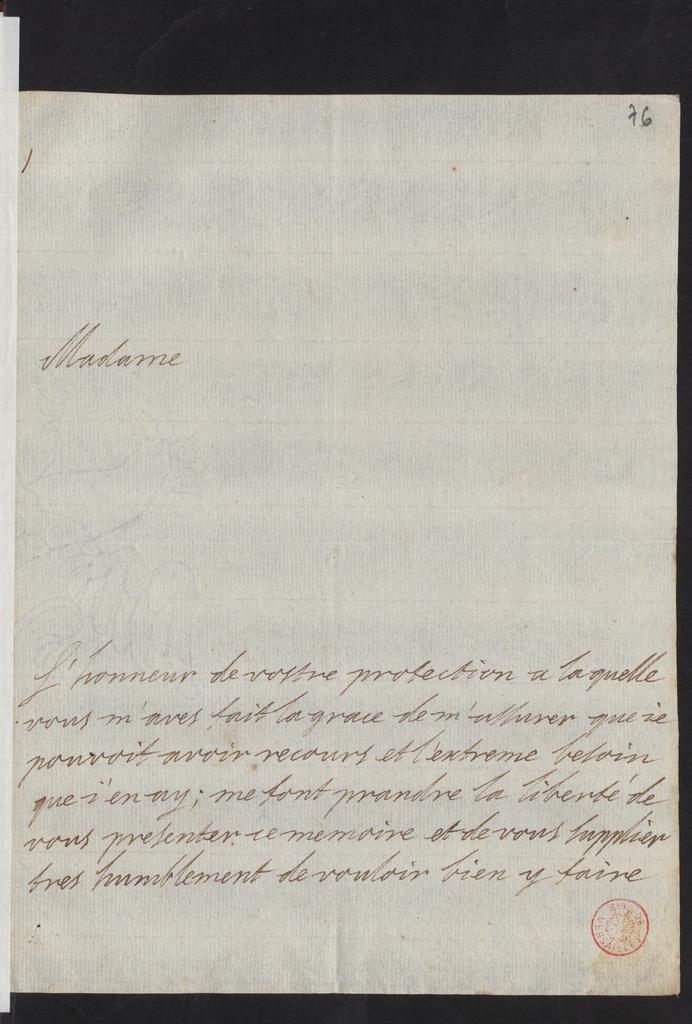 76
Madame
L'honneur de vostre protection a laquelle
vous m'aves fait la grace de m'assurer que ie
pouvoit avoir recours et l'extreme besoin
que i'en ay; me font prandre la liberté de
vous presenter ce memoire et de vous supplier
tres humblement de vouloir bien y faire
BIB. DE VERSAILLES